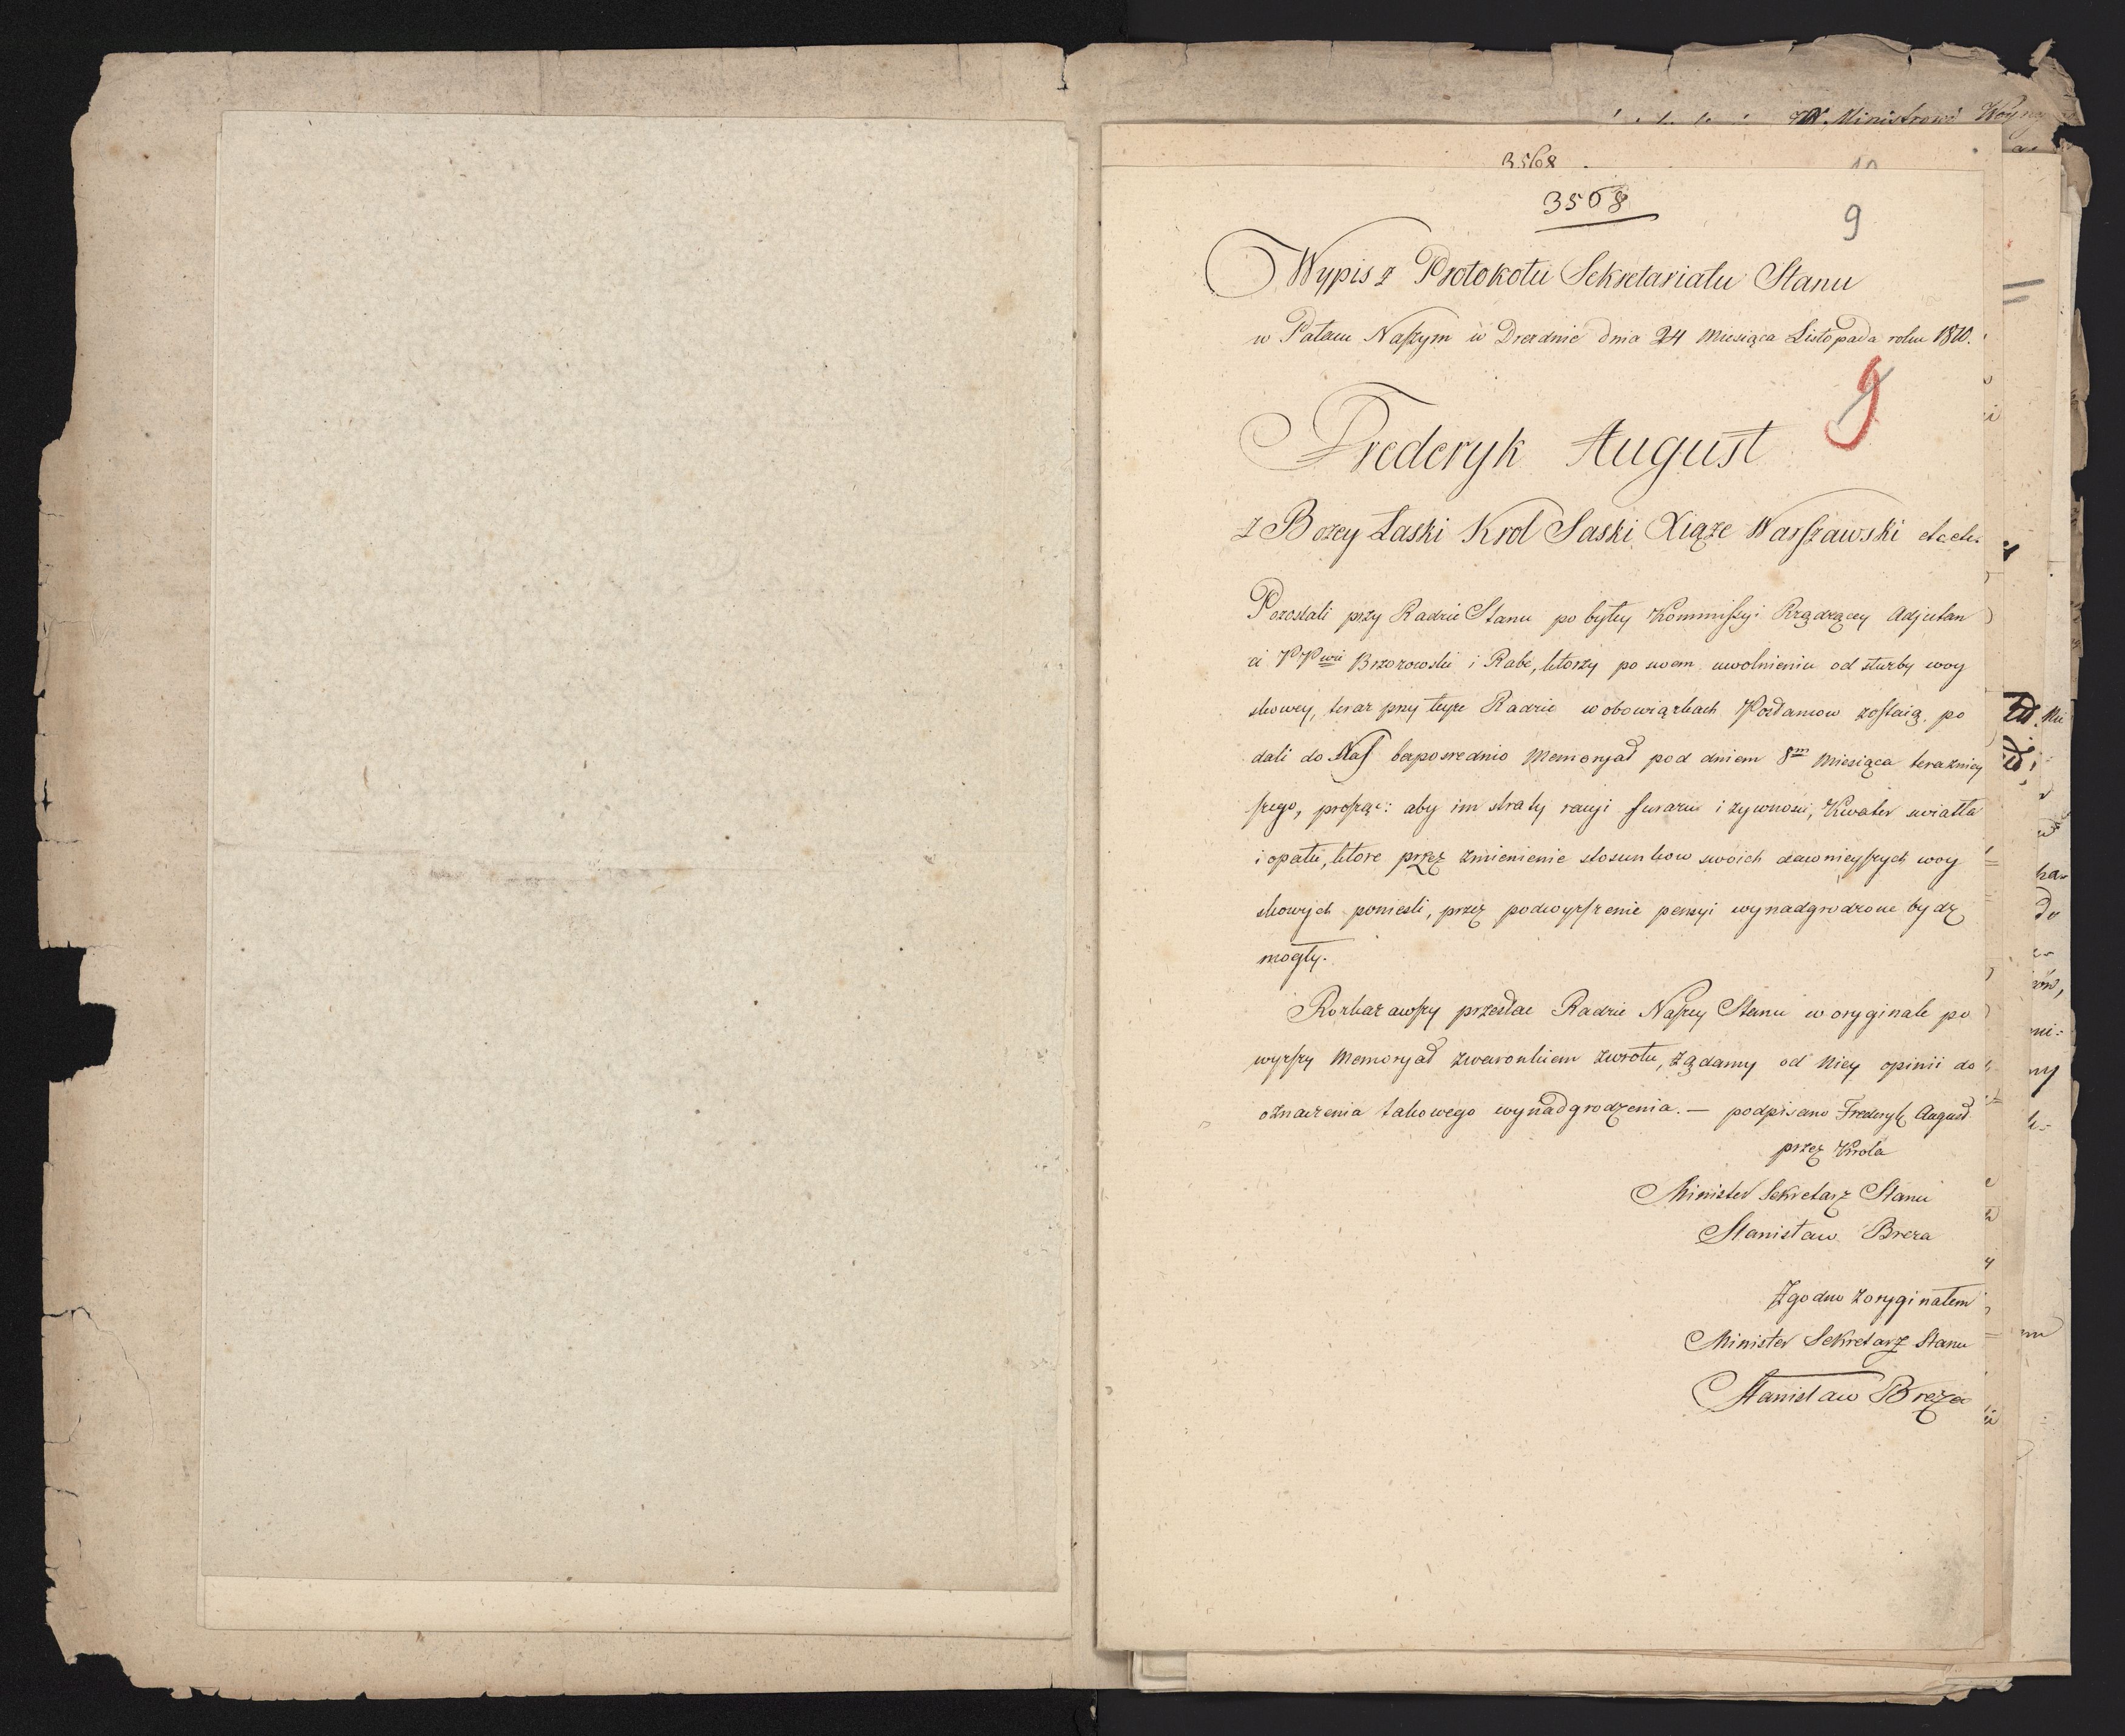 W. Ministrowi Woyny
3568
10
3568
9
Wypis z Protokołu Sekretariatu Stanu
w Pałacu Naszym w Dreźnie dnia 24 Miesiąca Listopada roku 1810.
9
Frederyk August
z Bozey Łaski Krol Saski Xiąze Warszawski etc etc.
Pozostali przy Radzie Stanu po byłey Kommissyi Rządzącey Adjutan
ci PPwie Brzozowski i Rabe, ktorzy po swem uwolnieniu od służby woy
skowey, teraz przy teyze Radzie w obowiązkach Wozdanow zostaią, po
dali do Nas bezposrednio Memoryał pod dniem 8m Miesiąca terazniey
szego, prosząc: aby im straty racyi furazu i zywnosci, Kwater swiatła
i opału, ktore przez zmienienie stosunkow swoich dawnieyszych woy
skowych poniesli, przez podwyzszenie pensyi wynadgrodzone bydz
mogły.
Rozkazawszy przesłac Radzie Naszey Stanu w oryginale po
wyzszy Memoryał z warunkiem zwrotu, ządamy od Niey opinii do
oznaczenia takowego wynadgrodzenia. — podpisano Frederyk August
przez Krola
Minister Sekretarz Stanu
Stanisław Breza
Zgodno z oryginałem
Minister Sekretarz Stanu
Stanisław Breza